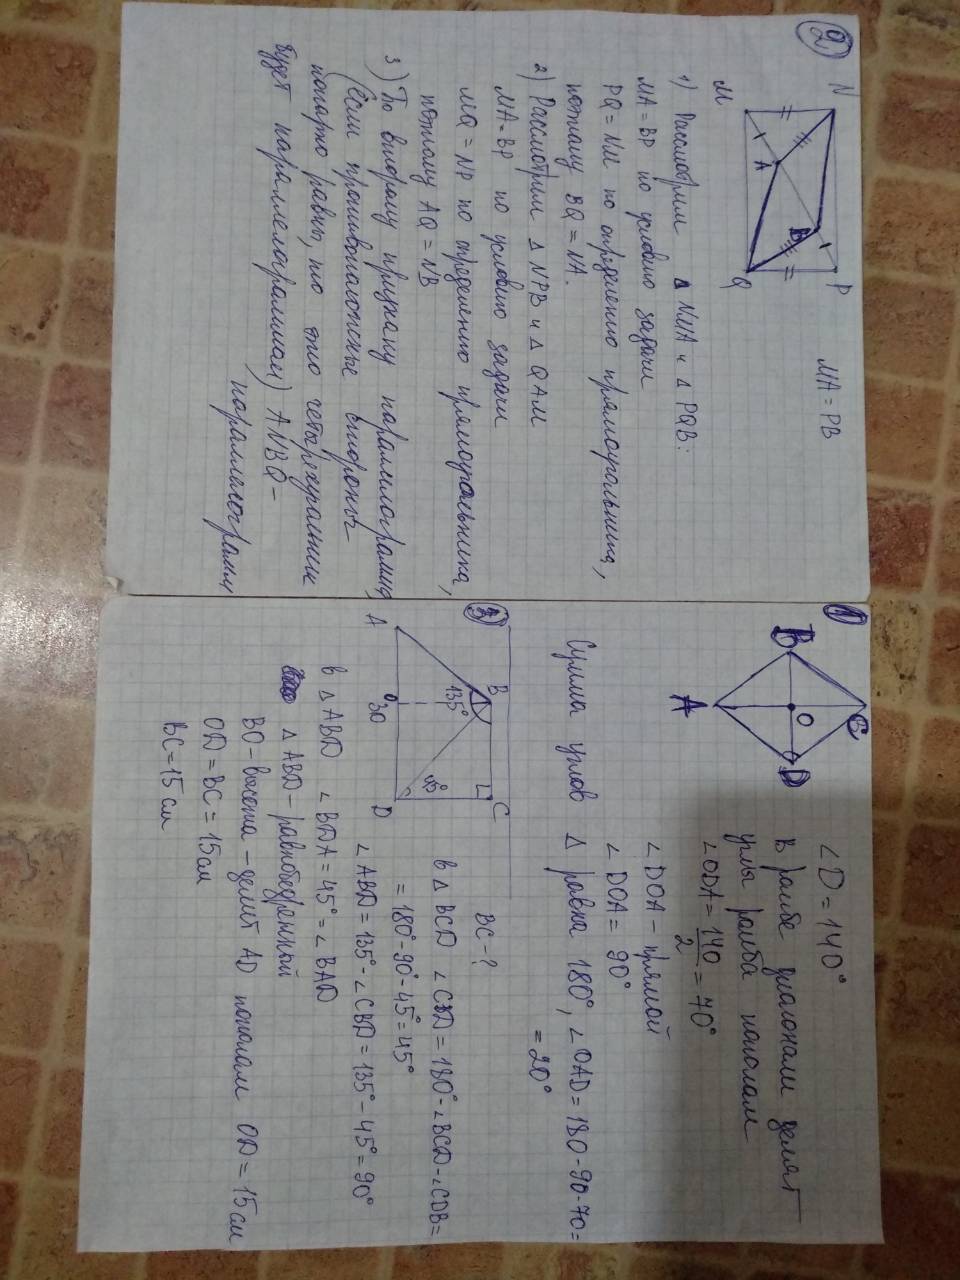 2)
N
P
M
Q
A
B
MA = PB
1) Рассмотрим Δ NMA и Δ PQB:
MA = BP по условию задачи
PQ = NM по определению прямоугольника,
поэтому BQ = NA.
2) Рассмотрим Δ NPB и Δ QAM
MA = BP по условию задачи
MQ = NP по определению прямоугольника,
поэтому AQ = NB
3) По второму признаку
(Если противоположные стороны
попарно равны, то это четырехугольник
будет параллелограммом) ANBQ –
параллелограмм
1)
B
C
O
A
D
∠D = 140°
В ромбе диагонали делят
углы ромба пополам
∠ODA = 140/2 = 70°
∠DOA – прямой
∠DOA = 90°
Сумма углов Δ равна 180°, ∠OAD = 180 - 90 - 70 =
= 20°
3)
A
B
C
D
135°
45°
30
BC - ?
в Δ BCD ∠CBD = 180° - ∠BCD - ∠CDB =
= 180° - 90° - 45° = 45°
∠ABD = 135° - ∠CBD = 135° - 45° = 90°
в Δ ABD ∠BDA = 45° = ∠BAD
Δ ABD – равнобедренный
BO – высота – делит AD пополам OD = 15 см
OD = BC = 15 см
BC = 15 см